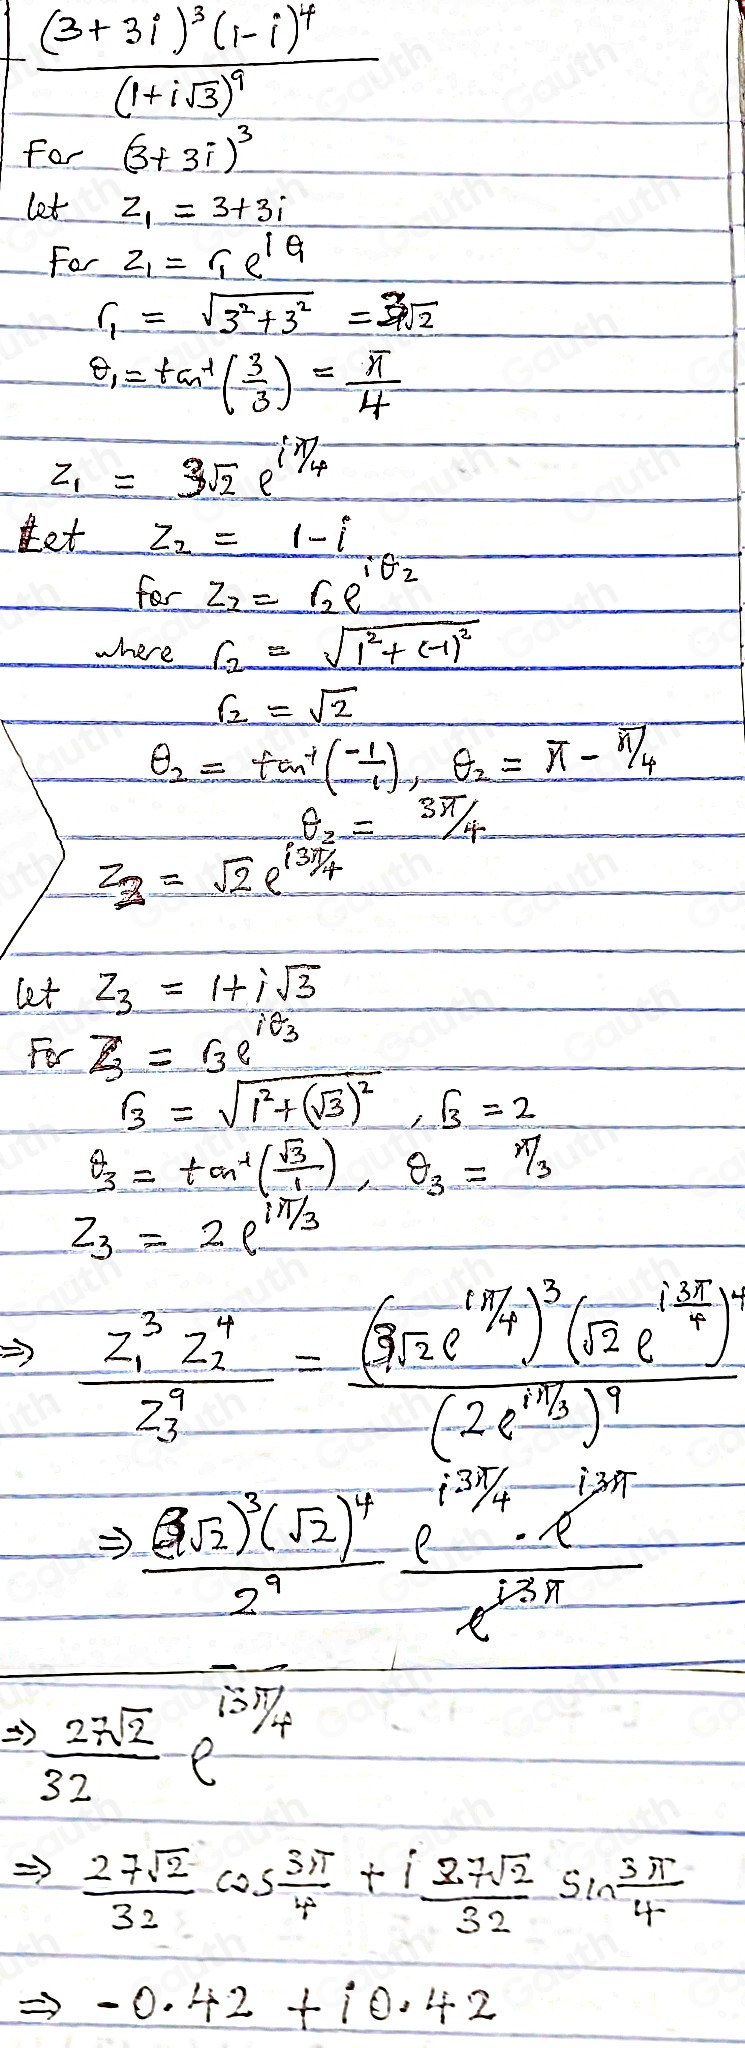 (3+3i)³(1-i)⁴ / (1+i√3)⁹
For (3+3i)³
let z₁ = 3+3i
For z₁ = r₁e^iθ₁
r₁ = √(3²+3²) = 3√2
θ₁ = tan⁻¹(3/3) = π/4
z₁ = 3√2 e^iπ/4
Let z₂ = 1-i
for z₂ = r₂e^iθ₂
where r₂ = √(1²+(-1)²)
r₂ = √2
θ₂ = tan⁻¹(-1/1), θ₂ = π - π/4
θ₂ = 3π/4
z₂ = √2 e^i3π/4
let z₃ = 1+i√3
For z₃ = r₃e^iθ₃
r₃ = √(1²+(√3)²), r₃ = 2
θ₃ = tan⁻¹(√3/1), θ₃ = π/3
z₃ = 2e^iπ/3
⇒ z₁³ z₂⁴ / z₃⁹ = (3√2e^iπ/4)³(√2 e^i3π/4)⁴ / (2e^iπ/3)⁹
⇒ (3√2)³(√2)⁴ / 2⁹ e^i3π/4 · e^i3π / e^i3π
⇒ 27√2/32 e^i3π/4
⇒ 27√2/32 cos 3π/4 + i 27√2/32 sin 3π/4
⇒ -0.42 + i0.42